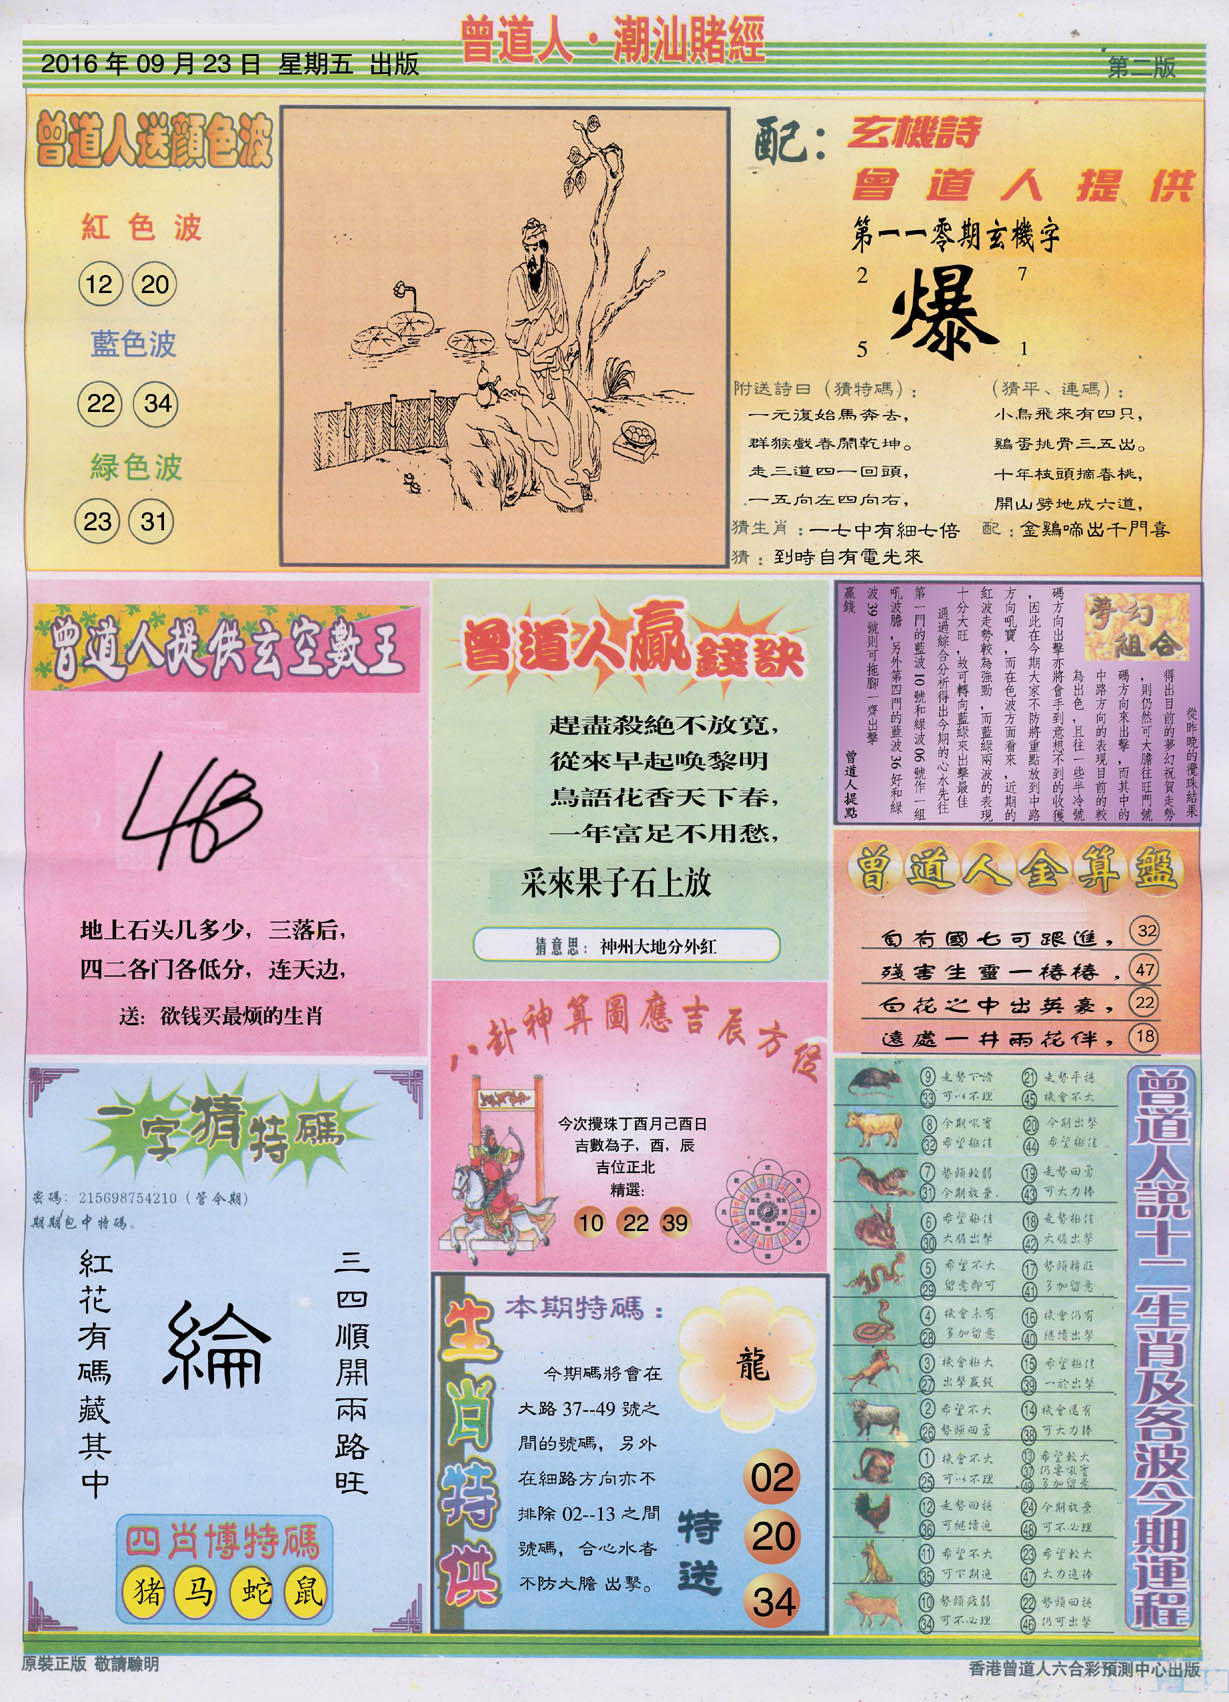 曾道人·潮汕賭經
2016年09月23日 星期五 出版
第二版
曾道人送顏色波
紅色波
12 20
藍色波
22 34
緑色波
23 31
配：玄機詩
曾道人提供
第一一零期玄機字
2 7
爆
5 1
附送詩曰（猜特碼）：
一元復始馬奔去，
群猴戲春鬧乾坤。
走三道四一回頭，
一五向左四向右，
（猜平、連碼）：
小鳥飛來有四只，
鷄蛋挑骨三五出。
十年枝頭摘春桃，
開山劈地成六道，
猜生肖：一七中有細七倍
配：金鷄啼出千門喜
猜：到時自有電光來
曾道人提供玄空數王
48
地上石头几多少，三落后，
四二各门各低分，连天边，
送：欲钱买最烦的生肖
曾道人贏錢訣
趕盡殺絶不放寬，
從來早起喚黎明
鳥語花香天下春，
一年富足不用愁，
采來果子石上放
猜意思：神州大地分外紅
夢幻組合
從昨晚的攪珠結果
得出目前的夢幻祝賀走勢
，則仍然可大膽往旺門號
碼方向來出擊，而其中的
中路方向的表現目前的較
為出色，且往一些半冷號
碼方向出擊亦將會手到意想不到的收獲
，因此在今期大家不防將重點放到中路
方向吼寶，而在色波方面看來，近期的
紅波走勢較為強勁，而藍綠兩波的表現
十分大旺，故可轉向藍綠來出擊最佳
通過綜合分析得出今期的心水先往
第一門的藍波10號和緑波06號作一組
吼波膽，另外第四門的藍波36好和緑
波39號則可拖腳一齊出擊
贏錢
曾道人提點
曾道人金算盤
自有國七可跟進， 32
殘害生靈一樁樁， 47
百花之中出英豪， 22
遠處一井兩花伴， 18
八卦神算圖應吉辰方位
今次攪珠丁酉月己酉日
吉數為子，酉，辰
吉位正北
精選：
10 22 39
一字猜特碼
密碼：215698754210（管令期）
期期包中特碼。
三四順開兩路旺
綸
紅花有碼藏其中
四肖博特碼
猪 马 蛇 鼠
生肖特供
本期特碼：
龍
今期碼將會在
大路37--49號之
間的號碼，另外
在細路方向亦不
排除02--13之間
號碼，合心水者
不防大膽出擊。
特送
02
20
34
曾道人説十二生肖及各波今期運程
9 走勢下滑 21 走勢平穩
33 可以不理 45 機會不大
8 今期吼寶 20 今期出擊
32 希望極佳 44 希望極佳
7 勢頭較弱 19 走勢回勇
31 今期放棄. 43 可大力捧
6 希望極佳 18 走勢極佳
30 大膽出擊 42 大膽出擊
5 希望不大 17 勢頭精旺
29 留意即可 41 多加留意
4 機會未有 16 機會仍有
28 多加留意 40 繼續出擊
3 機會極大 15 希望極佳
27 出擊贏錢 39 一於出擊
2 希望不大 14 機會還有
26 勢頭回勇 38 可大力捧
1 機會不大 13 希望較大
25 可以不理 37 仍要吼寶
49 多加留意
12 走勢回穩 24 今期放棄
36 可繼續追 48 可不必理
11 希望不大 23 希望較大
35 可下期追 47 大力追捧
10 勢頭疲弱 22 勢頭回穩
34 可不必理 46 仍可出擊
原裝正版 敬請驗明
香港曾道人六合彩預測中心出版